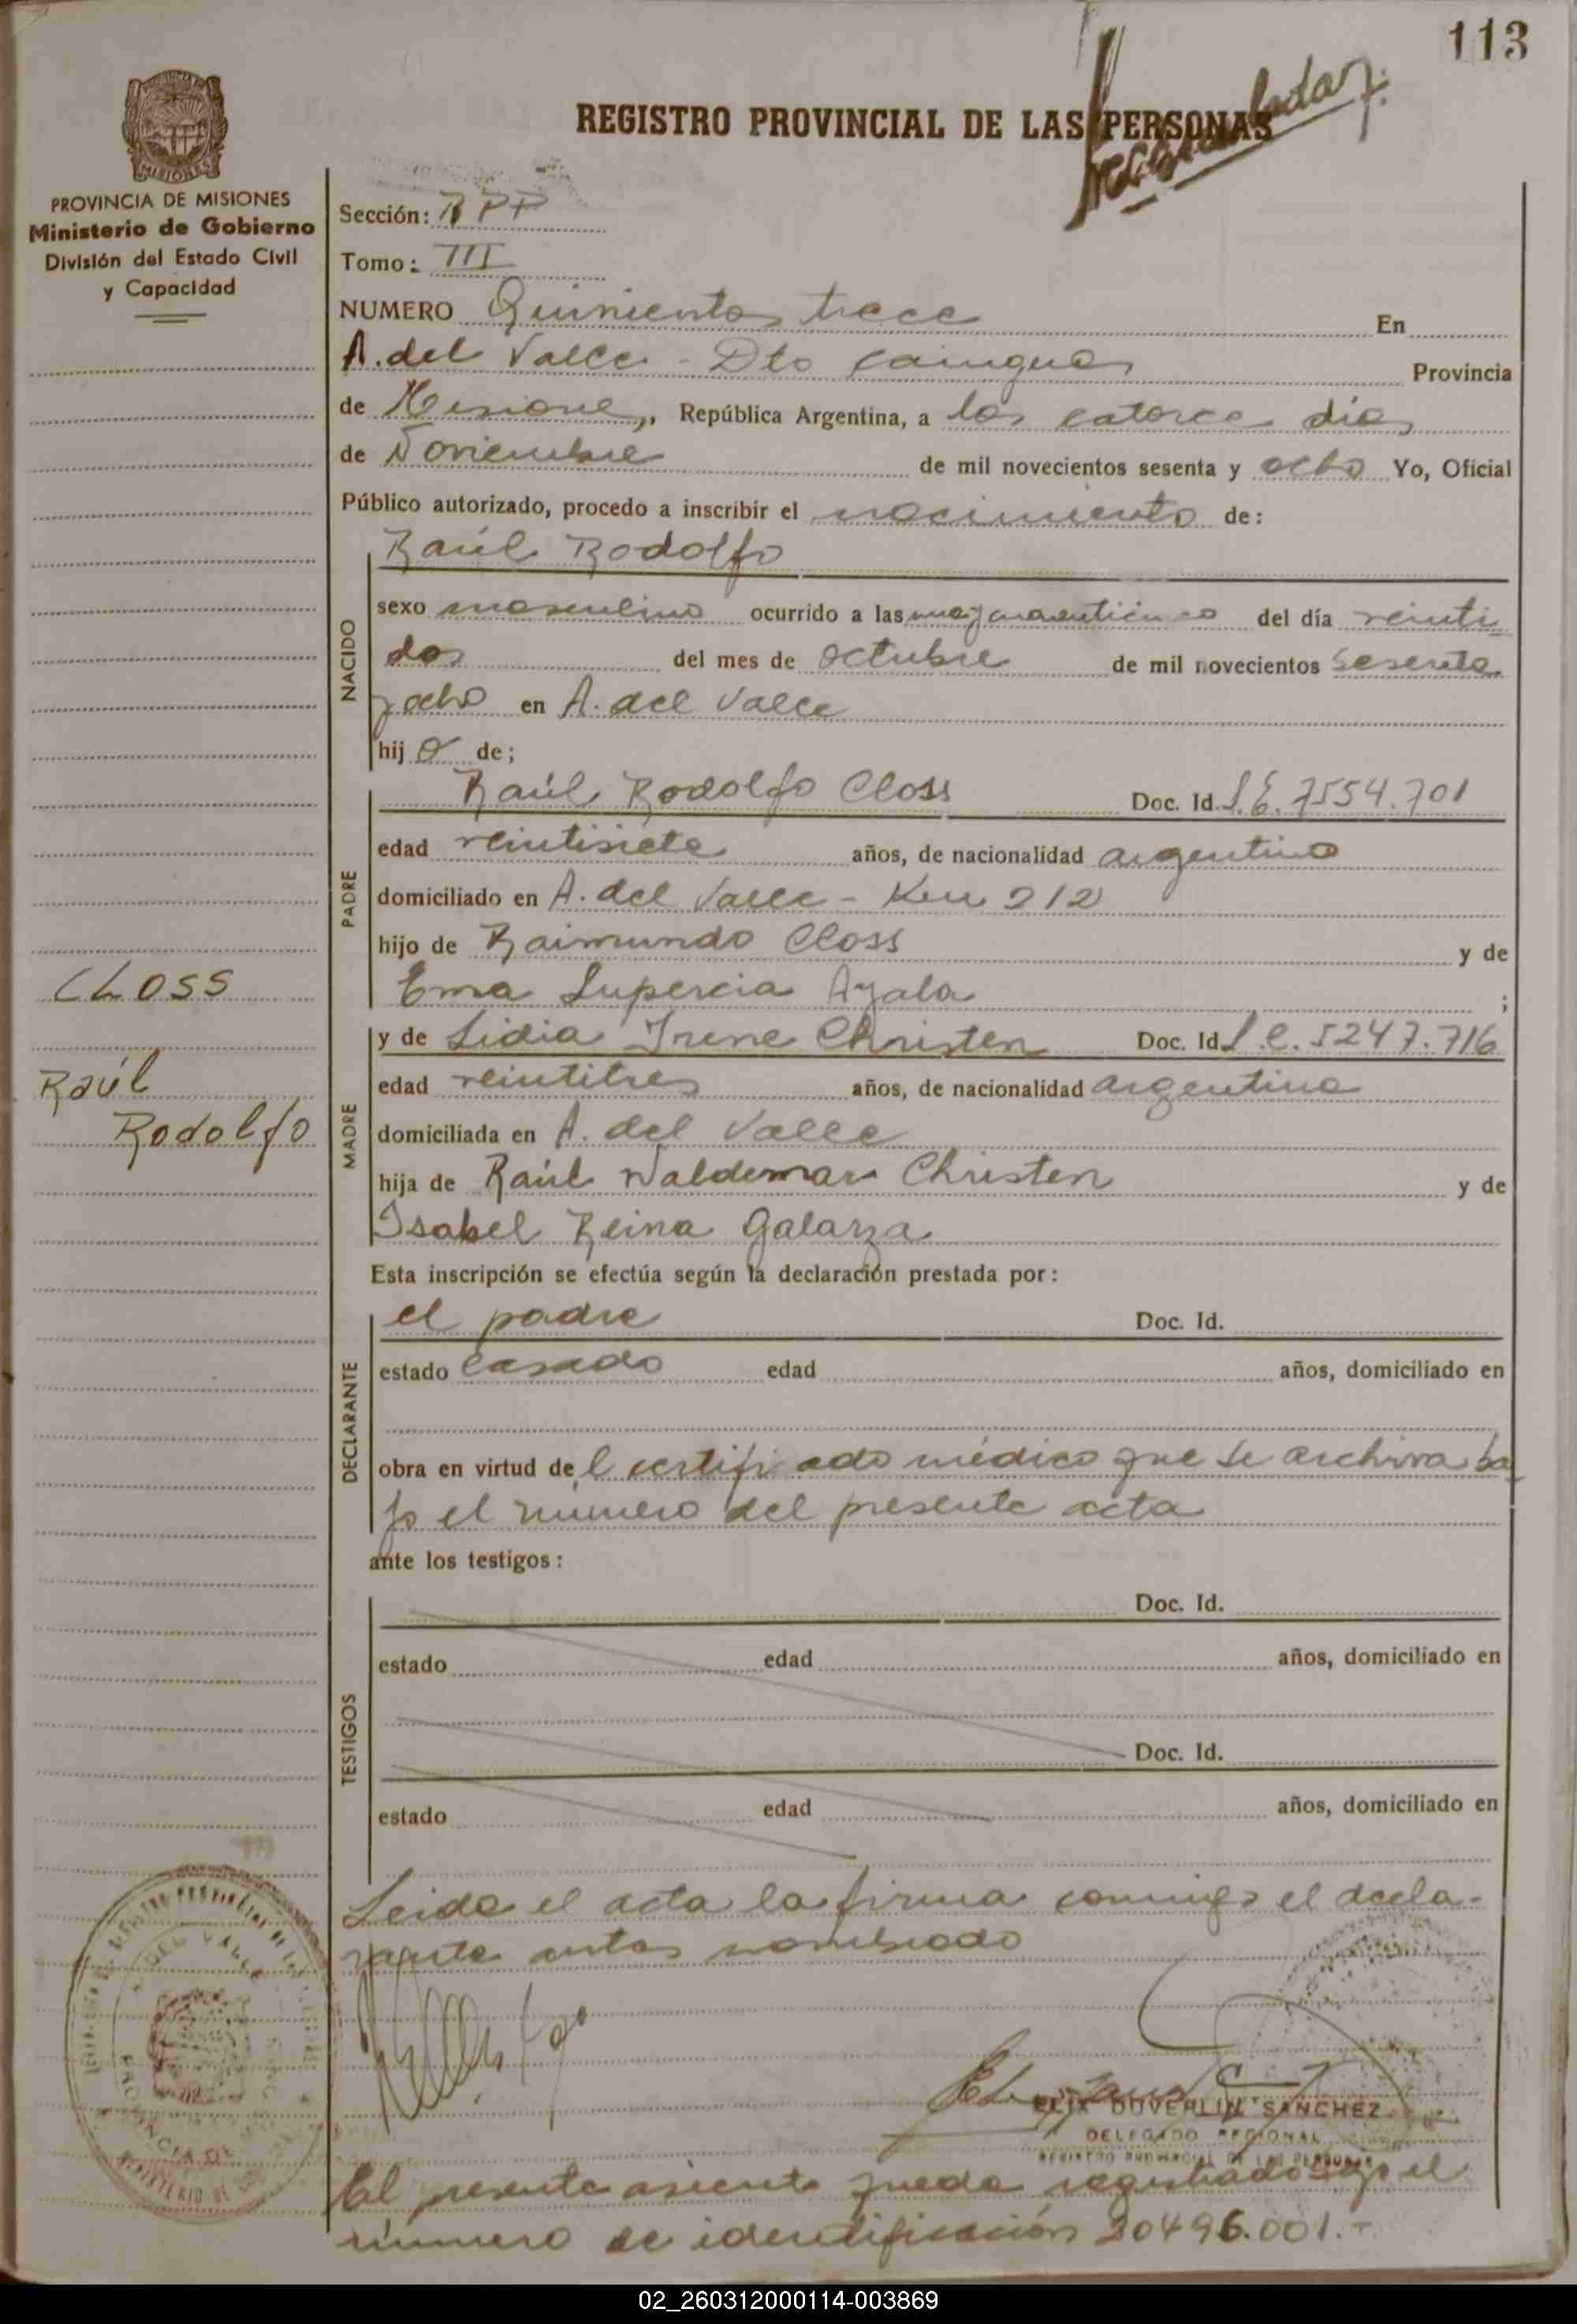 113
REGISTRO PROVINCIAL DE LAS PERSONAS
PROVINCIA DE MISIONES
Ministerio de Gobierno
División del Estado Civil
y Capacidad
Sección: RPP
Tomo: III
NUMERO Quinientos trece En
A. del Valle - Dto Cainguas Provincia
de Misiones, República Argentina, a los catorce días
de Noviembre de mil novecientos sesenta y ocho Yo, Oficial
Público autorizado, procedo a inscribir el nacimiento de:
Raúl Rodolfo
NACIDO
sexo masculino ocurrido a las una y cuarenticinco del día veinti
dos del mes de octubre de mil novecientos sesenta
y ocho en A. del Valle
hijo de;
PADRE
Raúl Rodolfo Closs Doc. Id. L.E. 7554.701
edad veintisiete años, de nacionalidad argentino
domiciliado en A. del Valle - Km 212
hijo de Raimundo Closs y de
Ema Lupercia Ayala ;
CLOSS
Raúl
Rodolfo
MADRE
y de Lidia Irene Christen Doc. Id. L.C. 5247.716
edad veintitres años, de nacionalidad argentina
domiciliada en A. del Valle
hija de Raúl Waldemar Christen y de
Isabel Reina Galarza
Esta inscripción se efectúa según la declaración prestada por:
DECLARANTE
el padre Doc. Id.
estado casado edad años, domiciliado en
obra en virtud del certificado médico que se archiva ba
jo el número del presente acta
ante los testigos:
TESTIGOS
Doc. Id.
estado edad años, domiciliado en
Doc. Id.
estado edad años, domiciliado en
Leida el acta la firma conmigo el decla-
rante antes nombrado
FELIX DUVERLIN SANCHEZ
DELEGADO REGIONAL
REGISTRO PROVINCIAL DE LAS PERSONAS
El presente asiento queda registrado bajo el
número de identificación 20496.001.-
02_260312000114-003869